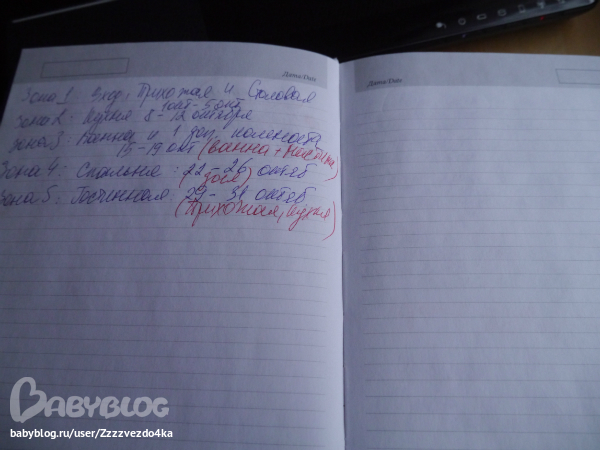 Дата/Date
Зона 1: Вход, Прихожая и Столовая
1 окт - 5 окт
Зона 2: Кухня 8 - 12 октября
Зона 3: Ванны и 1 доп. комната
15 - 19 окт (ванна +
Зона 4: Спальня: 22 - 26 октяб
Зона 5: Гостинная: 29 - 31 октяб
(Прихожая, кухня)
Дата/Date
BABYBLOG
babyblog.ru/user/Zzzzvezdo4ka